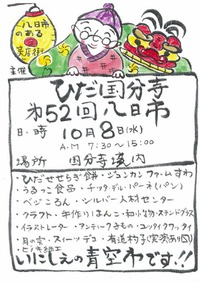 八日市
のある
安房街
主催
ひだ国分寺
第52回八日市
日・時 10月8日(水)
A.M 7:30〜15:00
場所 国分寺境内
・ひだせせらぎ餅・ジョンカンファームすわ
・うるっこ食品・チッタ・デル・パーネ(パン)
・ベジころん・シルバー人材センター
・クラフト・手作りはんこ・和小物・ステンドグラス
・イラストレーター・アンティークきもの・ユッタイクワッタイ
・月の家・スイーツデコ・有道杓子(実演あり)
・ヒノキ細工
いにしえの青空市です!!